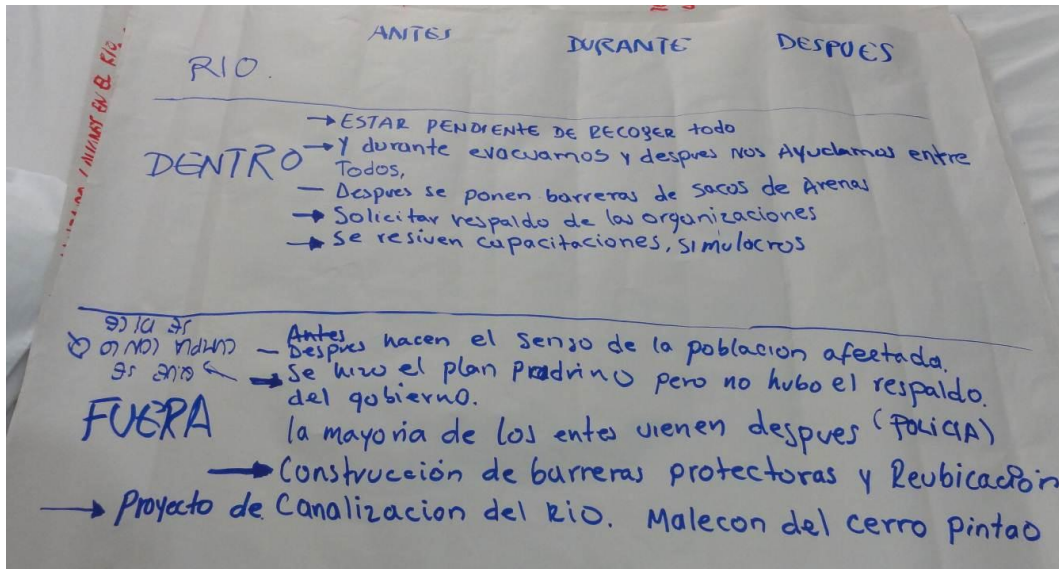 ANTES DURANTE DESPUES
RIO.
DENTRO
→ ESTAR PENDIENTE DE RECOGER todo
→ Y durante evacuamos y despues Nos Ayudamos entre
Todos,
— Despues se ponen barreras de sacos de Arenas
→ Solicitar respaldo de las organizaciones
→ Se resiven capacitaciones, simulacros
FUERA
Antes
— Despues hacen el senso de la poblacion afectada.
→ Se hizo el plan Padrino pero no hubo el respaldo.
del gobierno.
la mayoria de los entes vienen despues (POLICIA)
→ Construcción de barreras protectoras y Reubicación
→ Proyecto de Canalizacion del Rio. Malecon del cerro pintao
QUE SE
CUMPLA CON LO
SE DICE
EN EL RIO.